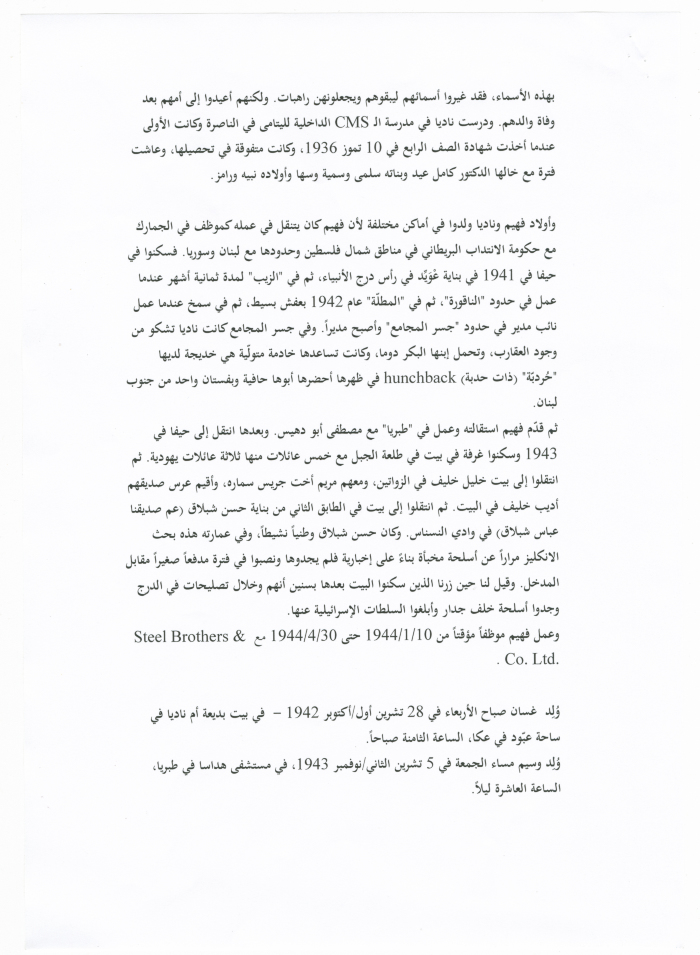 بهذه الأسماء، فقد غيروا أسمائهم ليبقوهم ويجعلونهن راهبات. ولكنهم أعيدوا إلى أمهم بعد
وفاة والدهم. ودرست ناديا في مدرسة الـ CMS الداخلية لليتامى في الناصرة وكانت الأولى
عندما أخذت شهادة الصف الرابع في 10 تموز 1936، وكانت متفوقة في تحصيلها، وعاشت
فترة مع خالها الدكتور كامل عيد وبناته سلمى وسمية وسها وأولاده نبيه ورامز.
وأولاد فهيم وناديا ولدوا في أماكن مختلفة لأن فهيم كان يتنقل في عمله كموظف في الجمارك
مع حكومة الانتداب البريطاني في مناطق شمال فلسطين وحدودها مع لبنان وسوريا. فسكنوا في
حيفا في 1941 في بناية عُوَيِّد في رأس درج الأنبياء، ثم في "الزيب" لمدة ثمانية أشهر عندما
عمل في حدود "الناقورة"، ثم في "المطلّة" عام 1942 بعفش بسيط، ثم في سمخ عندما عمل
نائب مدير في حدود "جسر المجامع" وأصبح مديراً. وفي جسر المجامع كانت ناديا تشكو من
وجود العقارب، وتحمل إبنها البكر دوما، وكانت تساعدها خادمة متولّية هي خديجة لديها
"حُردبّة" (ذات حدبة) hunchback في ظهرها أحضرها أبوها حافية وبفستان واحد من جنوب
لبنان.
ثم قدّم فهيم استقالته وعمل في "طبريا" مع مصطفى أبو دهيس. وبعدها انتقل إلى حيفا في
1943 وسكنوا غرفة في بيت في طلعة الجبل مع خمس عائلات منها ثلاثة عائلات يهودية. ثم
انتقلوا إلى بيت خليل خليف في الزواتين، ومعهم مريم أخت جريس سماره، وأقيم عرس صديقهم
أديب خليف في البيت. ثم انتقلوا إلى بيت في الطابق الثاني من بناية حسن شبلاق (عم صديقنا
عباس شبلاق) في وادي النسناس. وكان حسن شبلاق وطنياً نشيطاً، وفي عمارته هذه بحث
الانكليز مراراً عن أسلحة مخبأة بناءً على إخبارية فلم يجدوها ونصبوا في فترة مدفعاً صغيراً مقابل
المدخل. وقيل لنا حين زرنا الذين سكنوا البيت بعدها بسنين أنهم وخلال تصليحات في الدرج
وجدوا أسلحة خلف جدار وأبلغوا السلطات الإسرائيلية عنها.
وعمل فهيم موظفاً مؤقتاً من 1944/1/10 حتى 1944/4/30 مع Steel Brothers &
Co. Ltd. .
وُلِد غسان صباح الأربعاء في 28 تشرين أول/أكتوبر 1942 – في بيت بديعة أم ناديا في
ساحة عبّود في عكا، الساعة الثامنة صباحاً.
وُلِد وسيم مساء الجمعة في 5 تشرين الثاني/نوفمبر 1943، في مستشفى هداسا في طبريا،
الساعة العاشرة ليلاً.